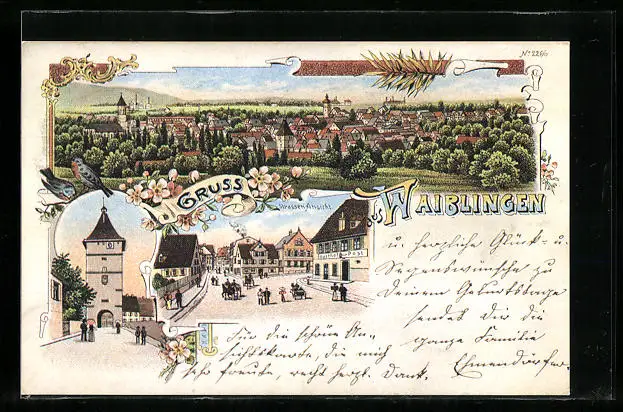 No 226/0
GRUSS
aus WAIBLINGEN
Strassen-Ansicht.
Gasthof z. Post
u. herzliche Glück- u.
Segenswünsche zu
Deinem Geburtstage
sendet Dir die
ganze Familie
Für die schöne An-
sichtskarte, die mich
sehr freute, recht herzl. Dank.